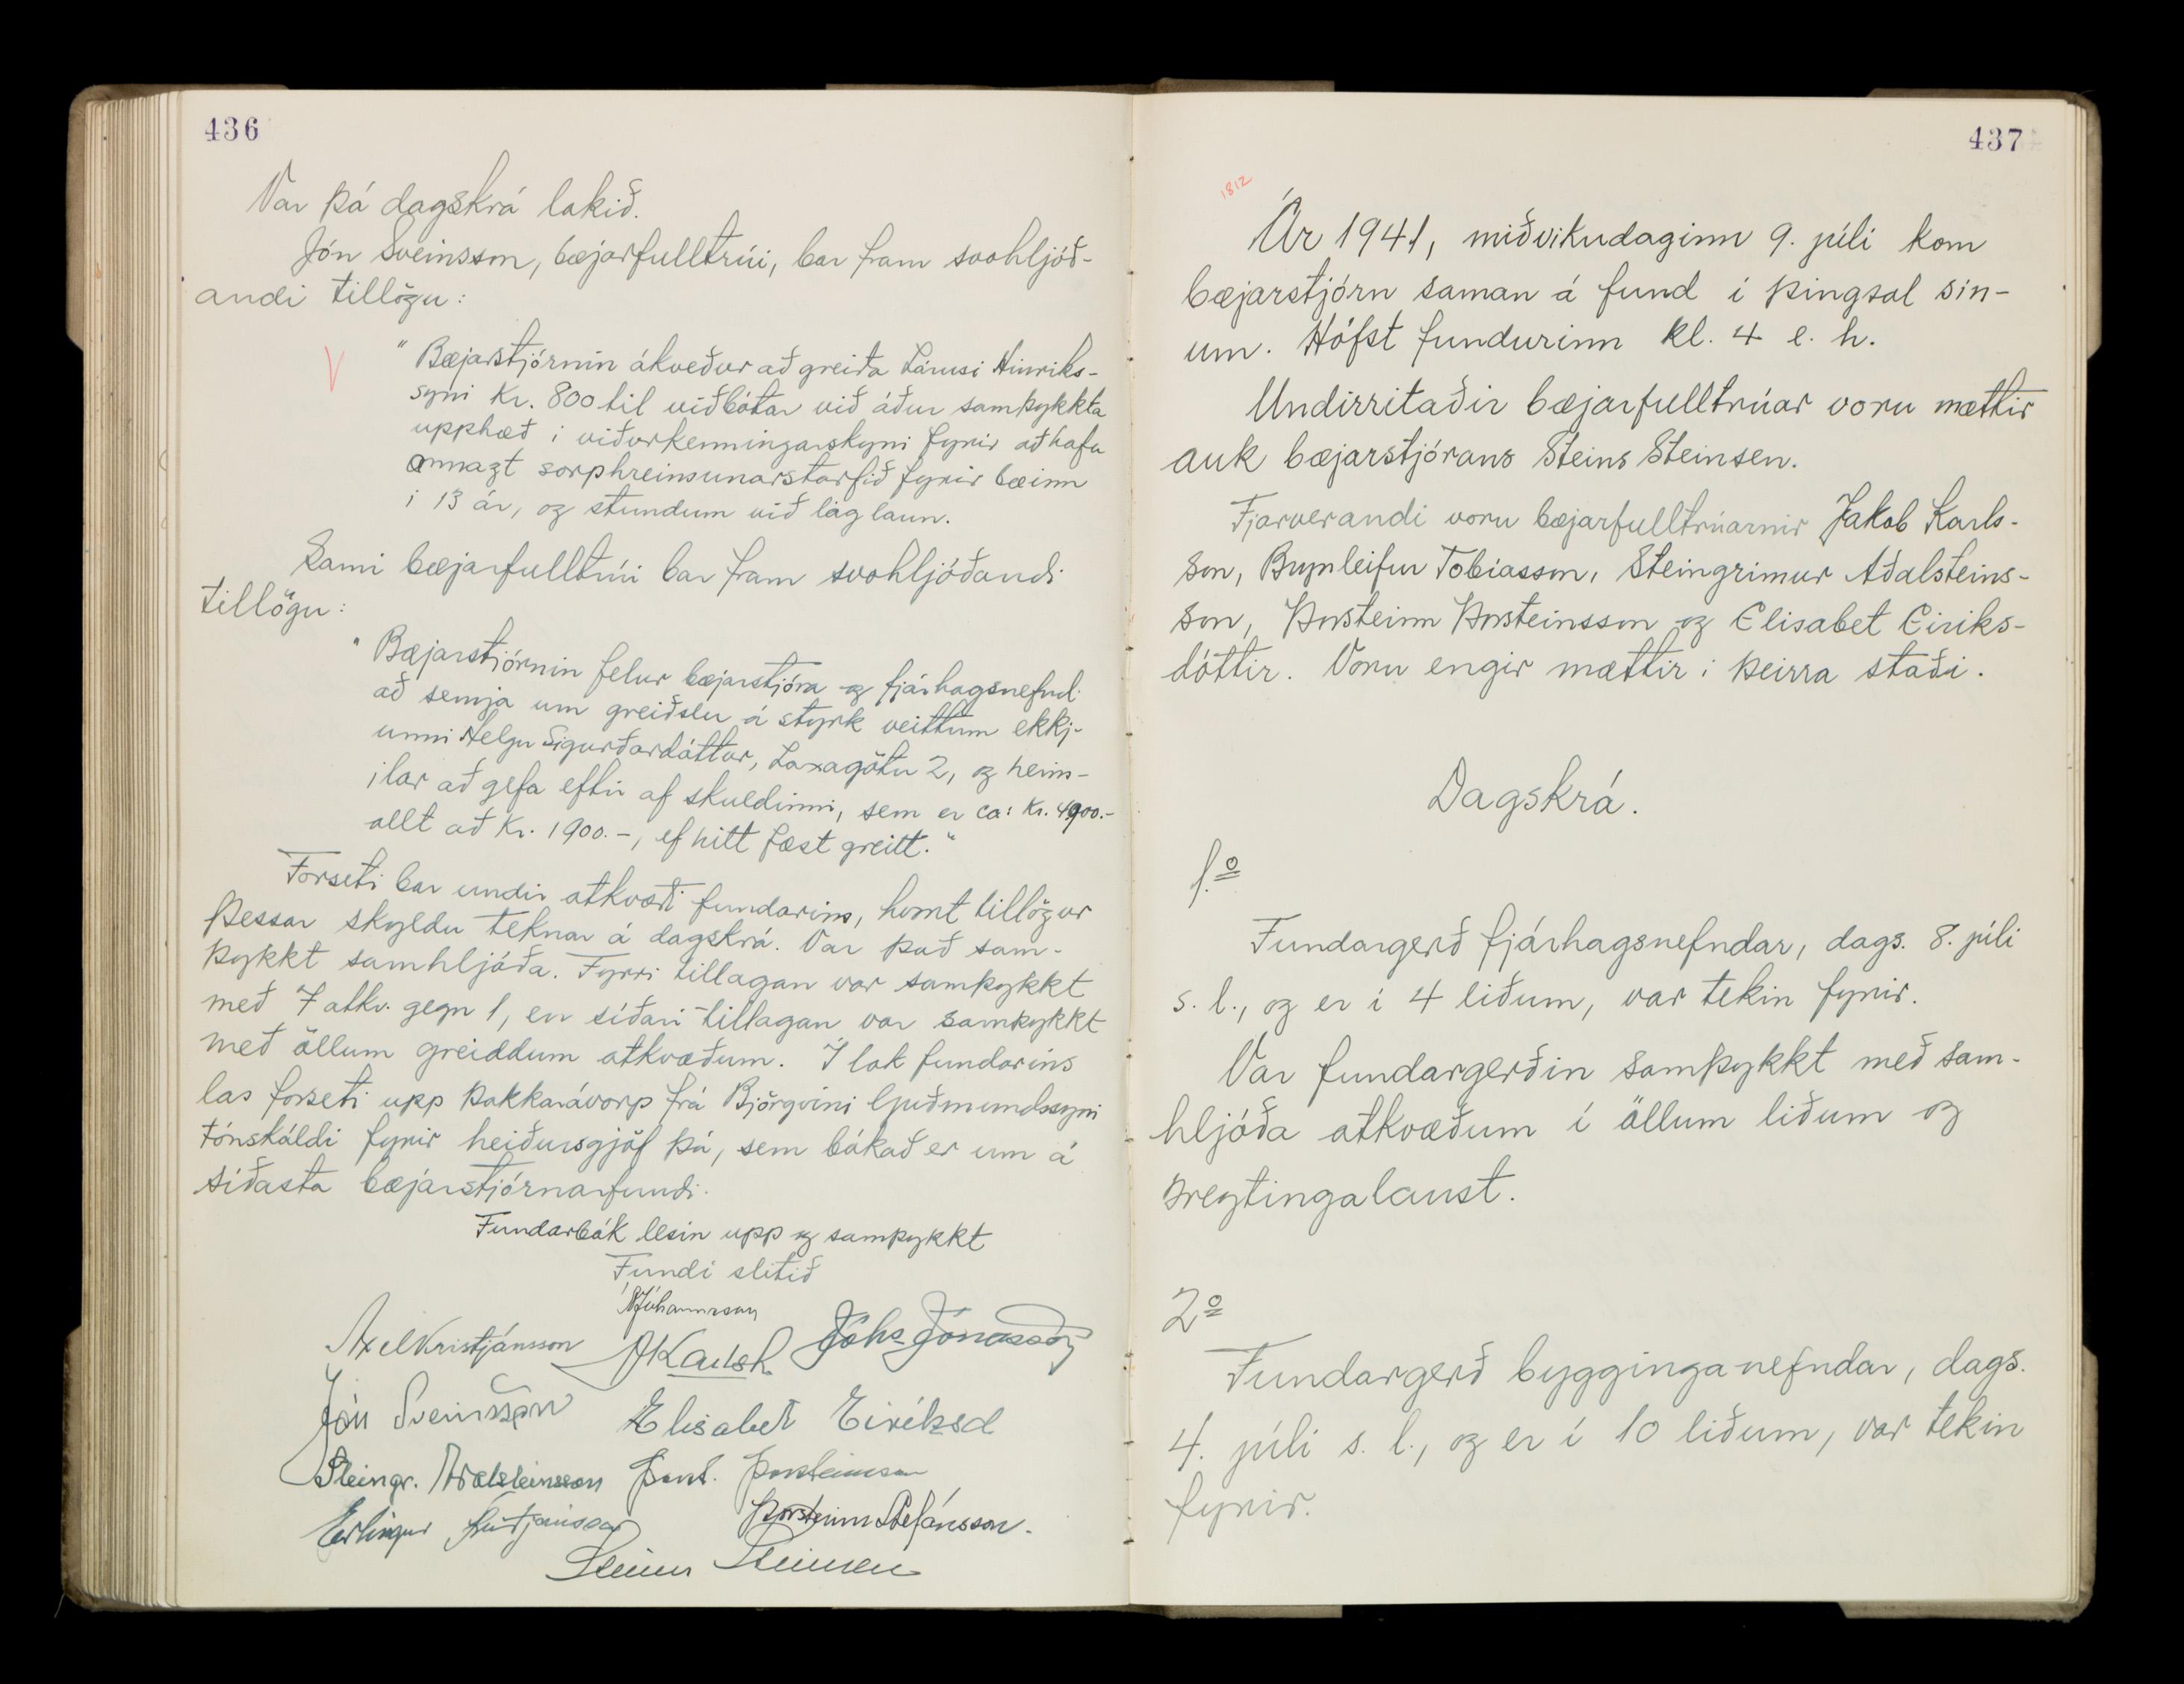 436
Var þá dagskrá lokið.
Jón Sveinsson, bæjarfulltrúi, bar fram svohljóð-
andi tillögu:
V
"Bæjarstjórnin ákveður að greiða Lárusi Hinriks-
syni Kr. 800 til viðbótar við áður samþykkta
upphæð í viðurkenningarskyni fyrir að hafa
annazt sorphreinsunarstarfið fyrir bæinn
í 13 ár, og stundum við lág laun.
Sami bæjarfulltrúi bar fram svohljóðandi
tillögu:
"Bæjarstjórnin felur bæjarstjóra og fjárhagsnefnd
að semja um greiðslu á styrk veittum ekkj-
unni Helgu Sigurðardóttur, Laxagötu 2, og heim-
ilar að gefa eftir af skuldinni, sem er ca: Kr. 4900.-
allt að Kr. 1900.-, ef hitt fæst greitt."
Forseti bar undir atkvæði fundarins, hvort tillögur
þessar skyldu teknar á dagskrá. Var það sam-
þykkt samhljóða. Fyrri tillagan var samþykkt
með 7 atkv. gegn 1, en síðari tillagan var samþykkt
með öllum greiddum atkvæðum. Í lok fundarins
las forseti upp þakkarávarp frá Björgvini Guðmundssyni
tónskáldi fyrir heiðursgjöf þá, sem bókað er um á
síðasta bæjarstjórnarfundi.
Fundarbók lesin upp og samþykkt
Fundi slitið
Jóhannsson
Axel Kristjánsson JKarlsson Jóhs Jónasson
Jón Sveinsson Elisabet Eiríksd
Steingr. Aðalsteinsson Þorst. Þorsteinsson
Erlingur Friðjónsson Þorsteinn Stefánsson.
Steinn Steinsen
437
1812
Ár 1941, miðvikudaginn 9. júlí kom
bæjarstjórn saman á fund í þingsal sín-
um. Hófst fundurinn kl. 4 e. h.
Undirritaðir bæjarfulltrúar voru mættir
auk bæjarstjórans Steins Steinsen.
Fjarverandi voru bæjarfulltrúarnir Jakob Karls-
son, Brynleifur Tobiasson, Steingrimur Aðalsteins-
son, Þorsteinn Þorsteinsson og Elisabet Eiriks-
dóttir. Voru engir mættir í þeirra stað.
Dagskrá.
1.o
Fundargerð fjárhagsnefndar, dags. 8. júlí
s. l., og er í 4 liðum, var tekin fyrir.
Var fundargerðin samþykkt með sam-
hljóða atkvæðum í öllum liðum og
breytingalaust.
2o
Fundargerð bygginganefndar, dags.
4. júlí s. l., og er í 10 liðum, var tekin
fyrir.